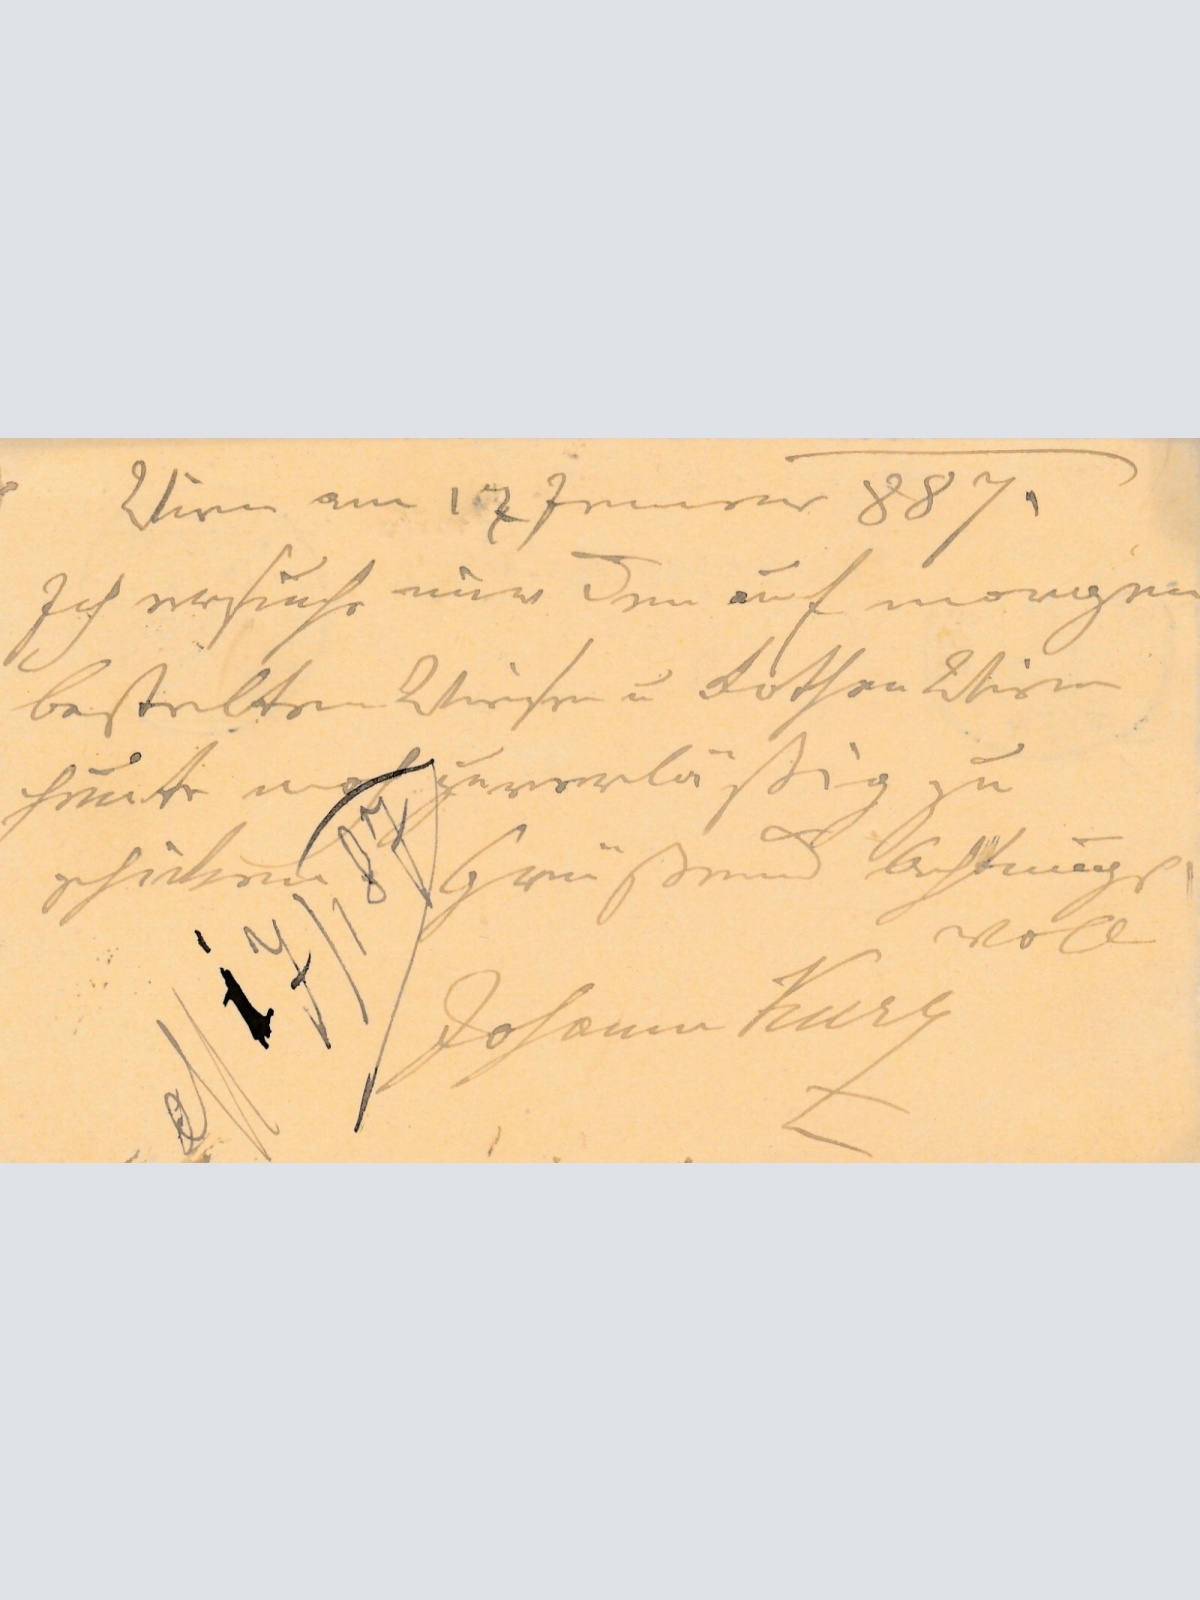 Wien am 17 Jenner 887.
Ich ersuche mir den auf morgen
bestellten Weißen u Rothen Wein
heute noch zuverläßig zu
schicken Grüßend Achtungs
voll
Johann Kurz
17/1 87